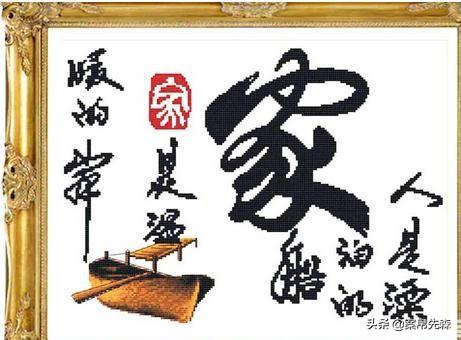 人是漂
泊的
船
家
家
是温
暖的
岸
头条 @案帛先森